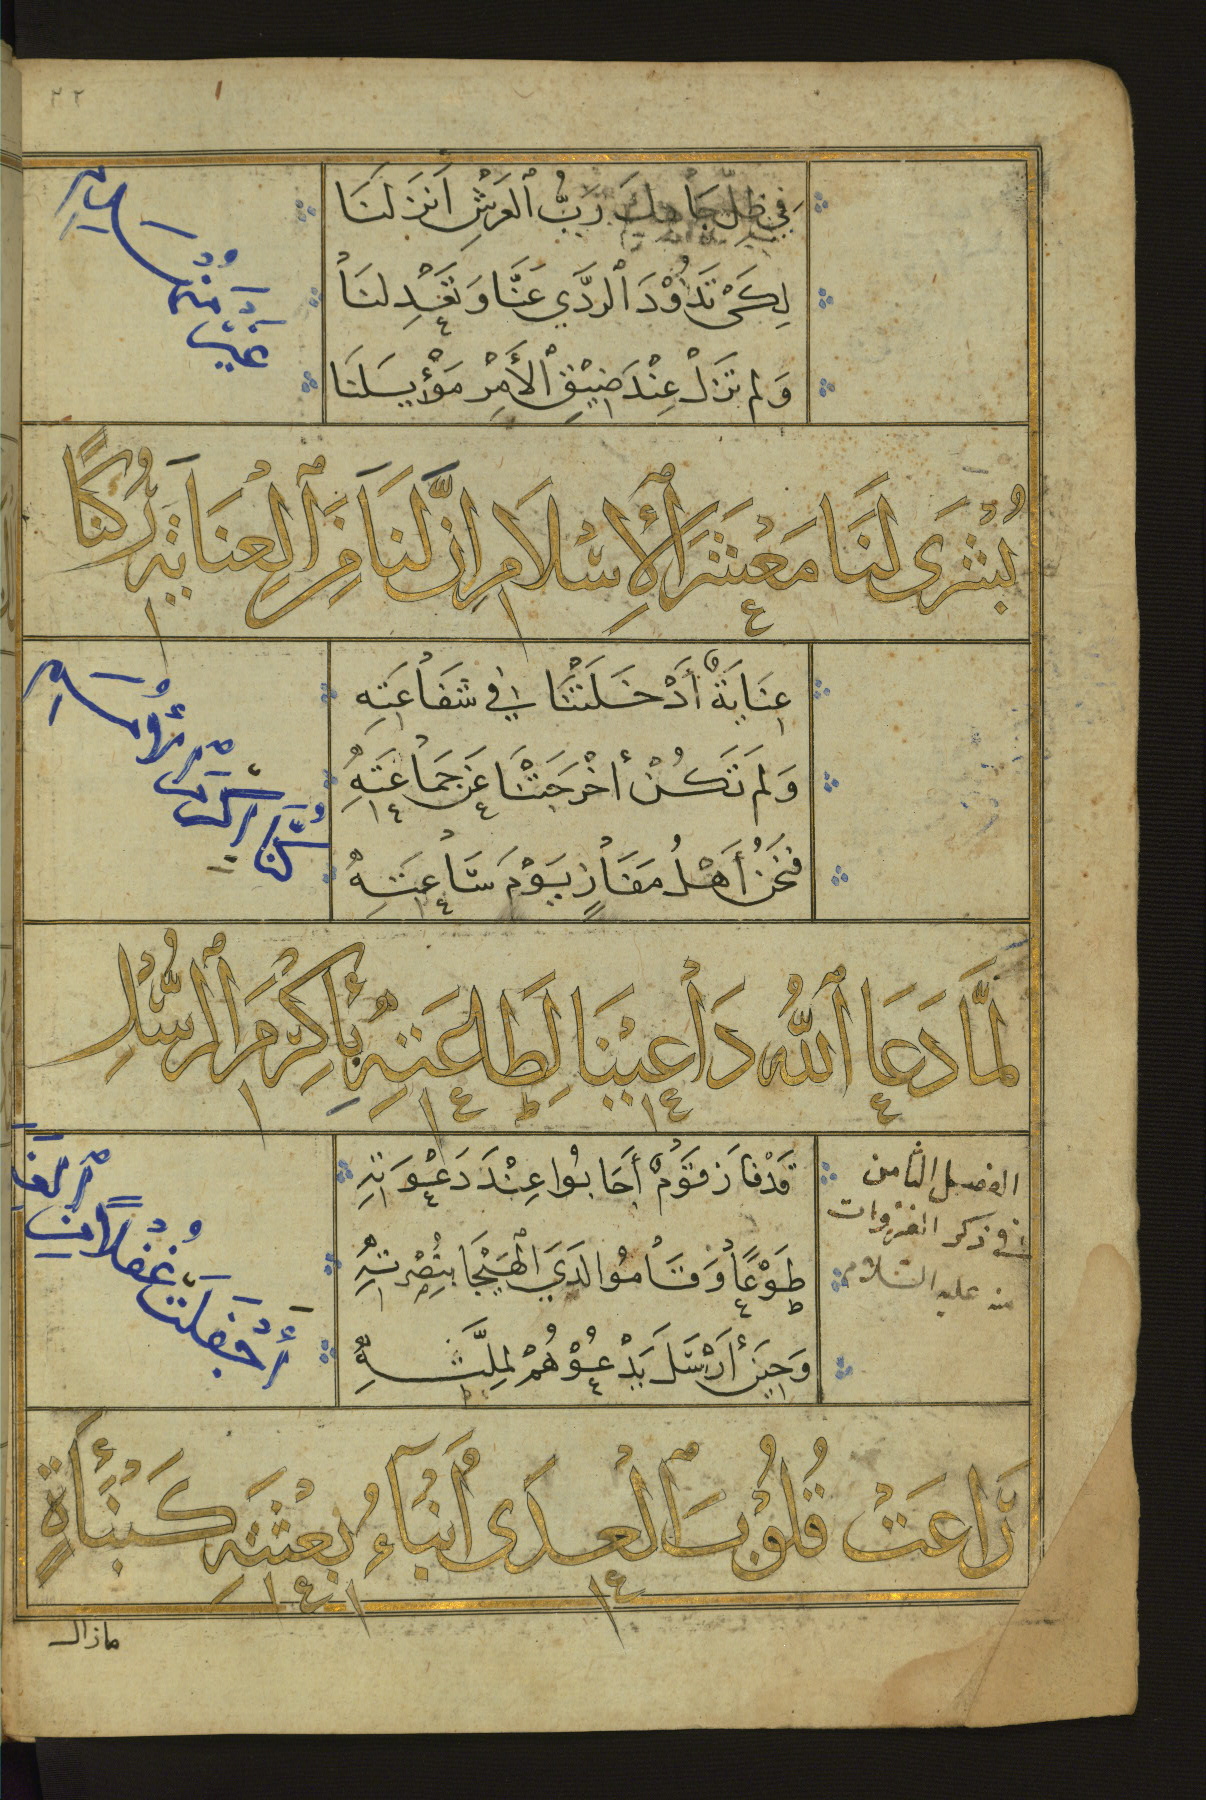 ٢٢
فِي ظِلِّ جَاهِكَ رَبُّ ٱلْعَرْشِ اَنْزَلَنَا
لِكَىْ تَذُوْدَ ٱلرَّدَي عَنَّا وَتَعْدِلَنَا
وَلم تَزَلْ عِنْدَ ضِيْقِ ٱلأَمْرِ مَوْئِلَنَا
بُشْرَى لَنَا مَعْشَرَ ٱلْإِسْلَامِ اِنَّ لَنَا مِنَ ٱلْعِنَايَةِ رُكْنًا
غَيْرَ مُنْهَدِمِ
عِنَايَةٌ أَدْخَلَتْنَا فِي شَفَاْعَتِهِ
وَلَمْ تَكُنْ أَخْرَجَتْنَا عَن جَمَاْعَتِهِ
فَنَحْنُ أَهْلُ مَفَاْزٍ يَوْمَ سَاْعَتِهِ
لَمَّا دَعَا ٱللّٰهُ دَاْعِيْنَا لِطَاعَتِهِ بِأَكْرَمِ ٱلرُّسْلِ
كُنَّا أَكْرَمَ ٱلْأُمَمِ
الفصل الثامن
في ذكر الغزوات
منه عليه السّلام
قَدْ فَازَ قَوْمٌ أَجَابُوا عِنْدَ دَعْوَتِهِ
طَوْعًا وَقَاْمُوا لَدَي ٱلْهَيْجَا بِنُصْرَتِهِ
وَحِيْنَ أَرْسَلَ يَدْعُوْهُمْ لِمِلَّتِهِ
رَاعَتْ قُلُوْبَ ٱلْعِدَى أَنْبَآءُ بِعْثَتِهِ كَنَبْأَةٍ
أَجْفَلَتْ غُفْلاً مِنَ ٱلْغَنَمِ
مازال